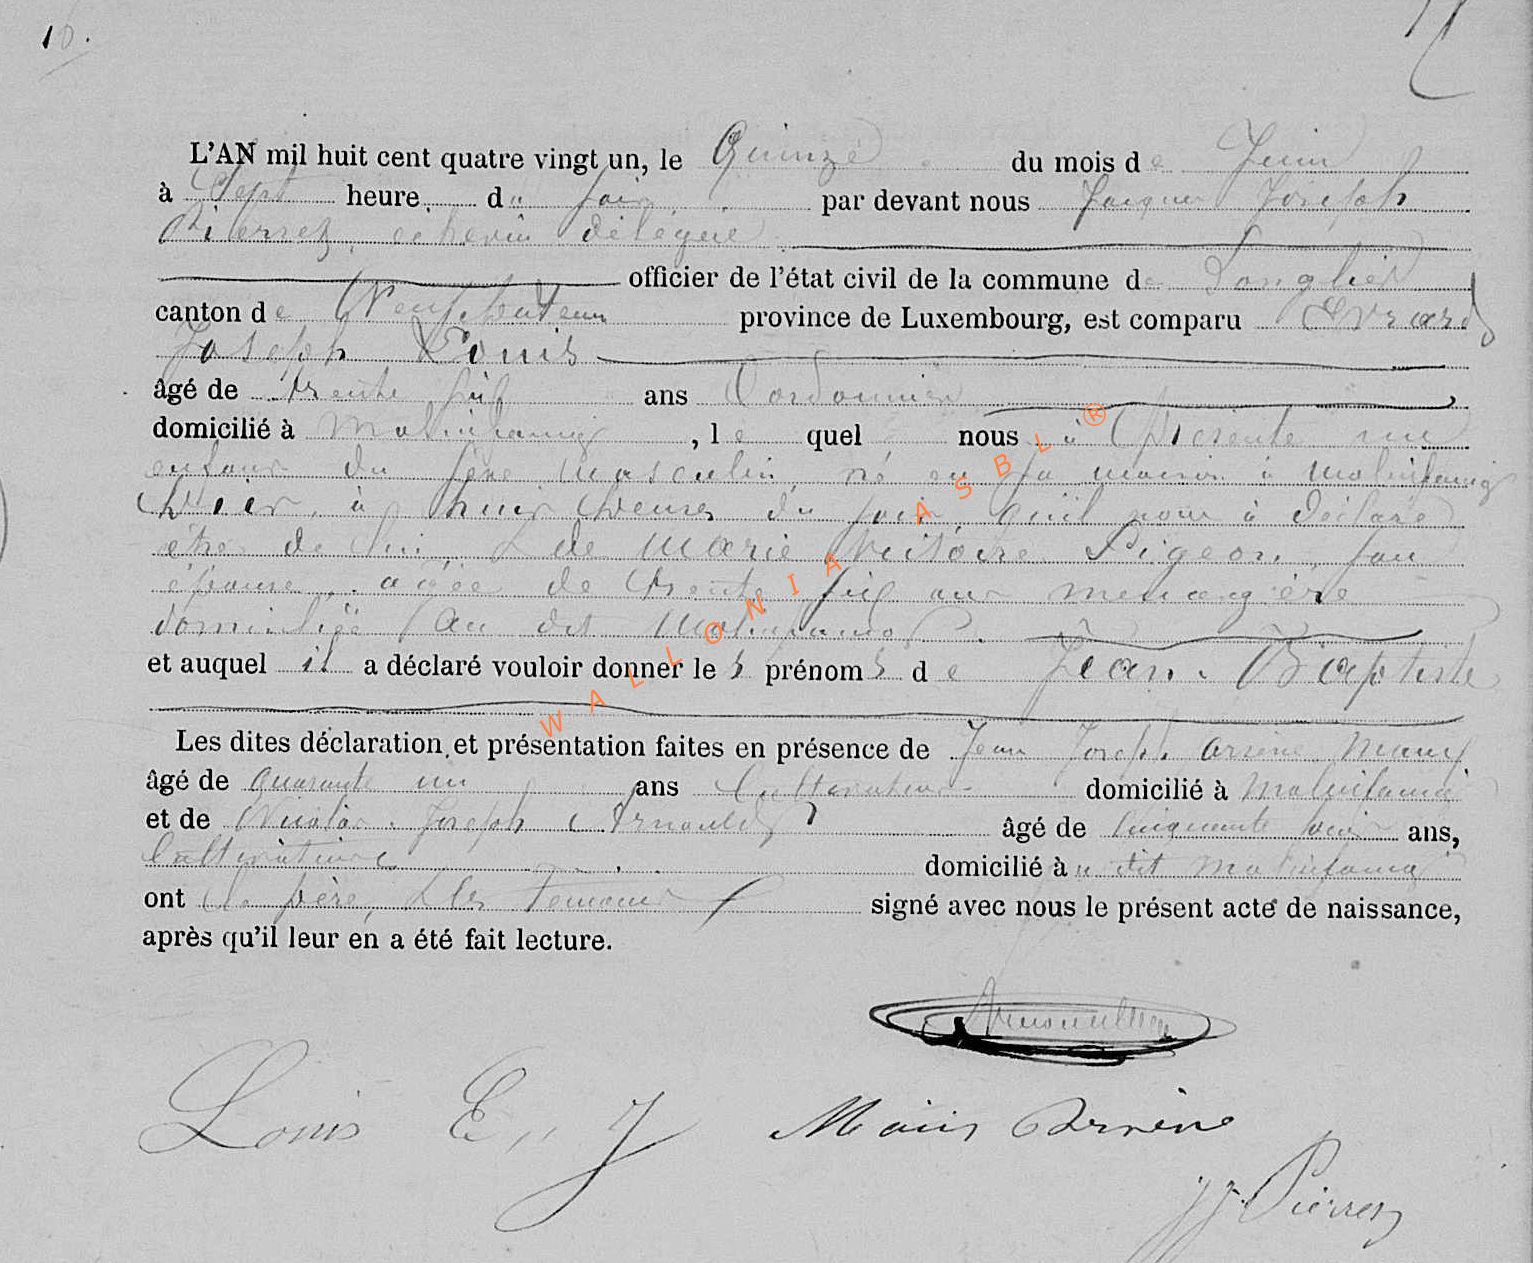 16.
L'AN mil huit cent quatre vingt un, le Quinze du mois de Juin
à Sept heure du soir par devant nous Jacques Joseph
Pierret, échevin délégué
officier de l'état civil de la commune de Longlier
canton de Neufchateau province de Luxembourg, est comparu Evrard
Joseph Louis
âgé de trente six ans Cordonnier
domicilié à Molinfaing, le quel nous a présenté un
enfant du sexe masculin, né en sa maison à Molinfaing
hier, à huit heures du soir, qu'il nous à déclaré
être de lui & de Marie Victoire Pigeon, son
épouse, agée de trente six ans menagère
domiciliée au dit Molinfaing.
et auquel il a déclaré vouloir donner les prénoms de Jean-Baptiste
Les dites déclaration et présentation faites en présence de Jean Joseph Arsène
âgé de quarante un ans Cultivateur domicilié à Molinfaing
et de Nicolas Joseph Arnould âgé de Cinquante ans,
Cultivateur domicilié au dit Molinfaing
ont le père, & les témoins signé avec nous le présent acte de naissance,
après qu'il leur en a été fait lecture.
WALLONIA ASBL®
Louis E,, J Arsène
JJ Pierret